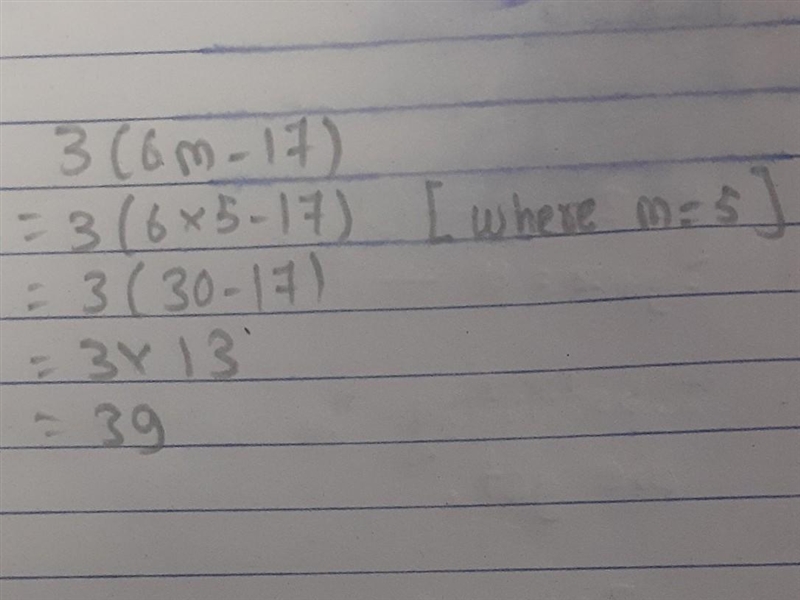 3(6m-17)
= 3(6×5-17) [where m=5]
= 3(30-17)
= 3×13
= 39